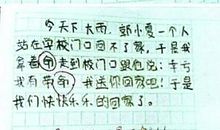 今天下大雨，郭小爱一个人
站在学校门口回不了家，于是我
拿着命走到校门口跟她说：于亏
我有命命，我送你回家吧！于是
我们快快乐乐的回家了。